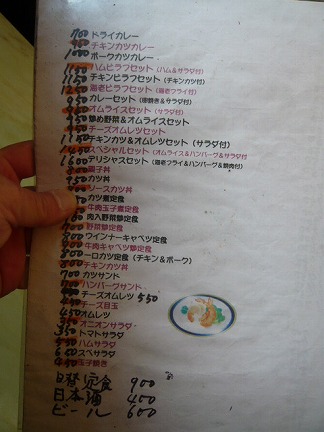 700 ドライカレー
950 チキンカツカレー
1000 ポークカツカレー
ハムピラフセット(ハム&サラダ付)
1150 チキンピラフセット(チキンカツ付)
1250 海老ピラフセット(海老フライ付)
950 カレーセット(唐揚き&サラダ付)
950 オムライスセット(サラダ付)
950 炒め野菜&オムライスセット
950 チーズオムレツセット
1150 チキンカツ&オムレツセット(サラダ付)
1150 スペシャルセット(オムライス&ハンバーグ&サラダ付
1600 デリシャスセット(海老フライ&ハンバーグ&焼肉付)
800 親子丼
950 カツ丼
900 ソースカツ丼
カツ煮定食
牛肉玉子煮定食
肉入野菜炒定食
700 野菜炒定食
800 ウインナーキャベツ定食
900 牛肉キャベツ炒定食
800 一口カツ定食(チキン&ポーク)
800 チキンカツ丼
700 カツサンド
700 ハンバーグサンド
チーズオムレツ 550
450 チーズ目玉
450 オムレツ
350 オニオンサラダ
350 トマトサラダ
550 ハムサラダ
650 スペサラダ
450 玉子焼き
日替定食 900
日本酒 400
ビール 600